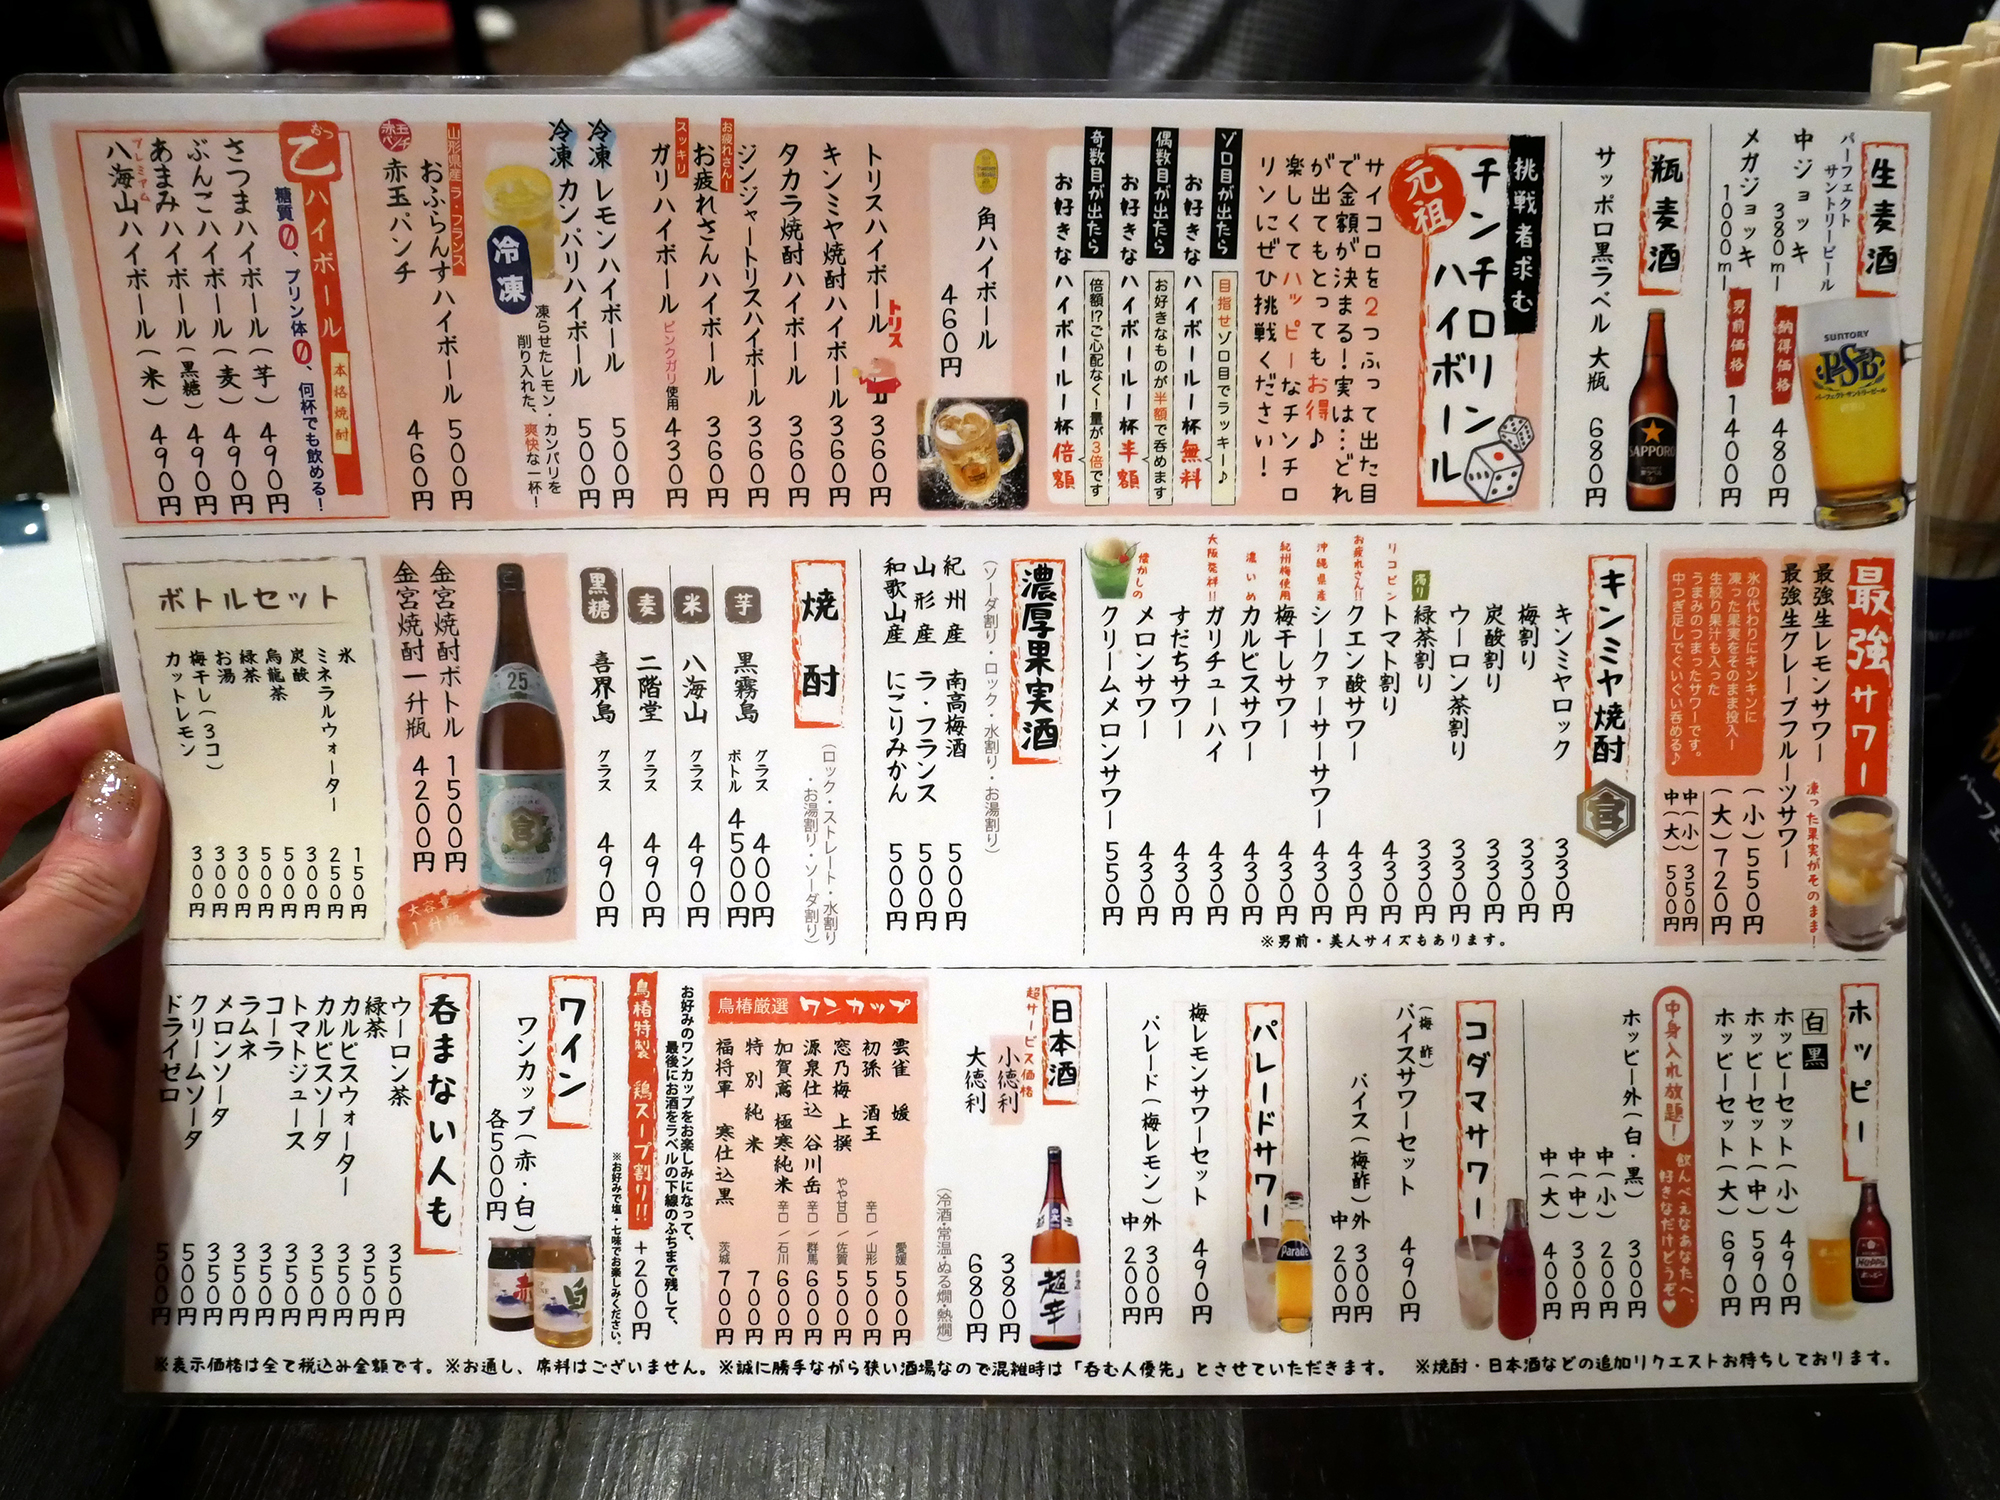 生麦酒
パーフェクト
サントリービール
中ジョッキ
380ml
納得価格
480円
メガジョッキ
1000ml
男前価格
1400円
瓶麦酒
サッポロ黒ラベル 大瓶 680円
挑戦者求む
元祖
チンチロリン
ハイボール
サイコロを2つふって出た目
で金額が決まる!実は…どれ
が出てもとってもお得♪
楽しくてハッピーなチンチロ
リンにぜひ挑戦ください!
ゾロ目が出たら
目指せゾロ目でラッキー♪
お好きなハイボール一杯無料
偶数目が出たら
お好きなものが半額で呑めます
お好きなハイボール一杯半額
奇数目が出たら
倍額!?ご心配なく!量が3倍です
お好きなハイボール一杯倍額
角ハイボール
460円
トリスハイボール 360円
トリス
キンミヤ焼酎ハイボール 360円
タカラ焼酎ハイボール 360円
ジンジャートリスハイボール 360円
お疲れさん!
お疲れさんハイボール 360円
スッキリ
ガリハイボール ピンクガリ使用 430円
冷凍 レモンハイボール 500円
冷凍 カンパリハイボール 500円
冷凍
凍らせたレモン・カンパリを
削り入れた、爽快な一杯!
山形県産 ラ・フランス
おふらんすハイボール 500円
赤玉パンチ
赤玉パンチ 460円
おつ
乙ハイボール
本格焼酎
糖質0、プリン体0、何杯でも飲める!
さつまハイボール(芋) 490円
ぶんごハイボール(麦) 490円
あまみハイボール(黒糖) 490円
プレミアム
八海山ハイボール(米) 490円
最強サワー
凍った果実がそのまま!
最強生レモンサワー
最強生グレープフルーツサワー
(小)550円
(大)720円
中(小)350円
中(大)500円
氷の代わりにキンキンに
凍った果実をそのまま投入!
生絞り果汁も入った
うまみのつまったサワーです。
中つぎ足しでぐいぐい呑める♪
キンミヤ焼酎
キンミヤロック 330円
梅割り 330円
炭酸割り 330円
ウーロン茶割り 330円
濁り
緑茶割り 330円
リコピン
トマト割り 430円
お疲れさん!!
クエン酸サワー 430円
沖縄県産
シークァーサーサワー 430円
紀州梅使用
梅干しサワー 430円
濃いめ
カルピスサワー 430円
大阪発祥!!
ガリチューハイ 430円
すだちサワー 430円
メロンサワー 430円
懐かしの
クリームメロンサワー 550円
※男前・美人サイズもあります。
濃厚果実酒
(ソーダ割り・ロック・水割り・お湯割り)
紀州産 南高梅酒 500円
山形産 ラ・フランス 500円
和歌山産 にごりみかん 500円
焼酎
(ロック・ストレート・水割り
・お湯割り・ソーダ割り)
芋
黒霧島
グラス 400円
ボトル 4500円
米
八海山 グラス 490円
麦
二階堂 グラス 490円
黒糖
喜界島 グラス 490円
金宮焼酎ボトル 1500円
金宮焼酎一升瓶 4200円
大容量
1升瓶
ボトルセット
氷 150円
ミネラルウォーター 250円
炭酸 300円
烏龍茶 500円
緑茶 500円
お湯 300円
梅干し(3コ) 300円
カットレモン 300円
ホッピー
白 黒
ホッピーセット(小) 490円
ホッピーセット(中) 590円
ホッピーセット(大) 690円
中身入れ放題!
飲んべえなあなたへ、
好きなだけどうぞ♥
ホッピー外(白・黒) 300円
中(小) 200円
中(中) 300円
中(大) 400円
コダマサワー
(梅酢)
バイスサワーセット 490円
バイス(梅酢)外 300円
中 200円
パレードサワー
梅レモンサワーセット 490円
パレード(梅レモン)外 300円
中 200円
日本酒
超サービス価格
小徳利 380円
大徳利 680円
(冷酒・常温・ぬる燗・熱燗)
鳥椿厳選 ワンカップ
雲雀 媛 愛媛 500円
初孫 酒王 辛口/山形 500円
窓乃梅 上撰 やや甘口/佐賀 500円
源泉仕込 谷川岳 辛口/群馬 600円
加賀鳶 極寒純米 辛口/石川 600円
特別純米 700円
福将軍 寒仕込黒 茨城 700円
お好みのワンカップをお楽しみになって、
最後にお酒をラベルの下線のふちまで残して、
鳥椿特製 鶏スープ割り!! +200円
※お好みで塩・七味でお楽しみください。
ワイン
ワンカップ(赤・白)
各500円
呑まない人も
ウーロン茶 350円
緑茶 350円
カルピスウォーター 350円
カルピスソーダ 350円
トマトジュース 350円
コーラ 350円
ラムネ 350円
メロンソーダ 350円
クリームソーダ 500円
ドライゼロ 500円
※表示価格は全て税込み金額です。※お通し、席料はございません。※誠に勝手ながら狭い酒場なので混雑時は「呑む人優先」とさせていただきます。 ※焼酎・日本酒などの追加リクエストお待ちしております。